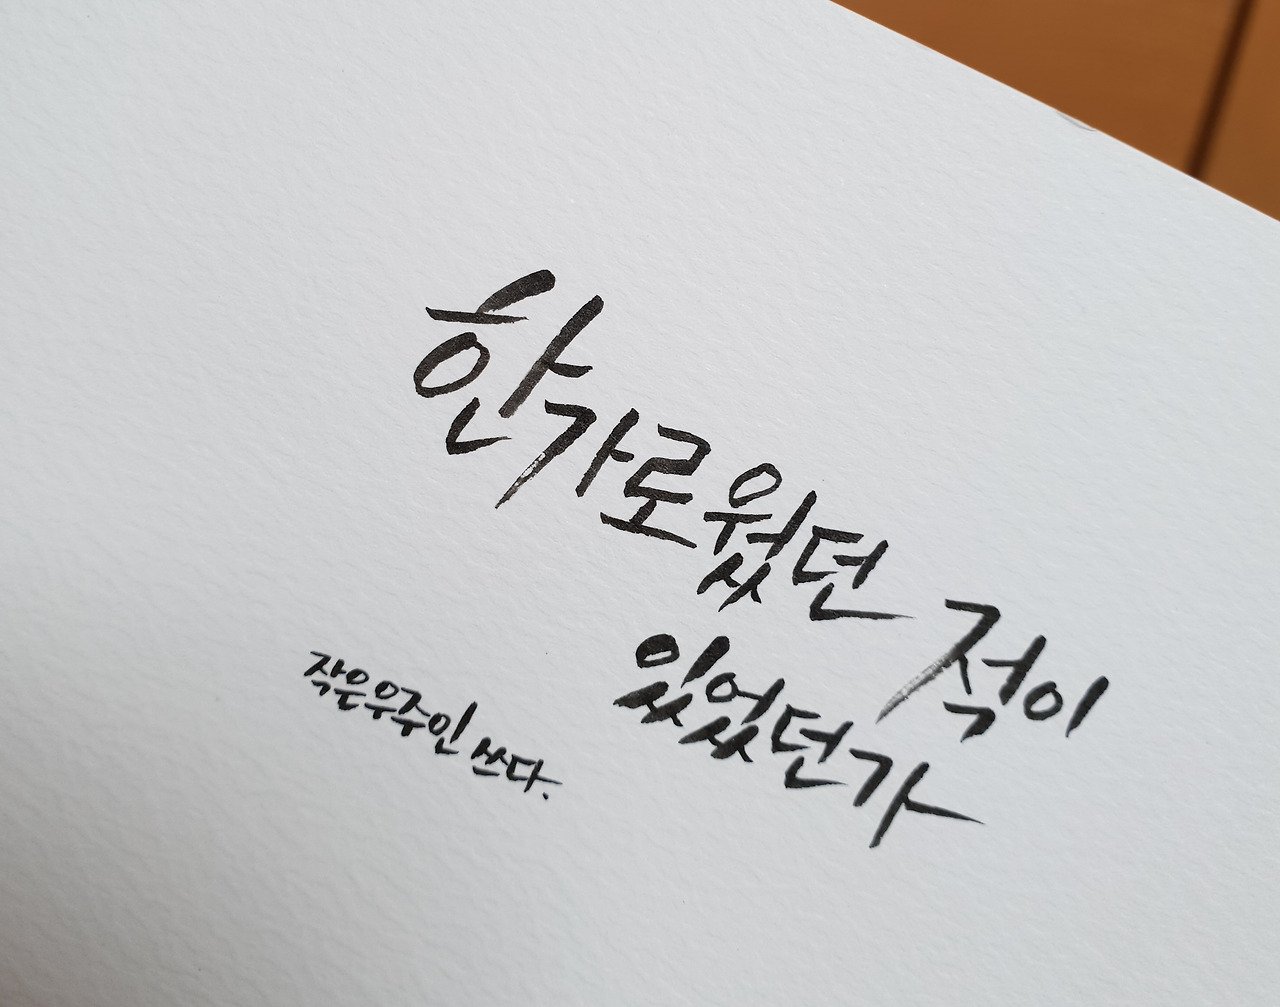 한가로웠던 적이
있었던가
작은우주인 쓰다.